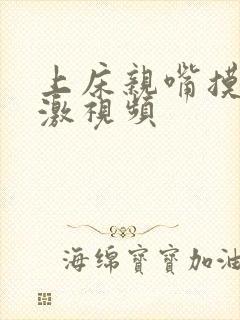 上床親嘴摸
激視頻
海绵寶寶加油